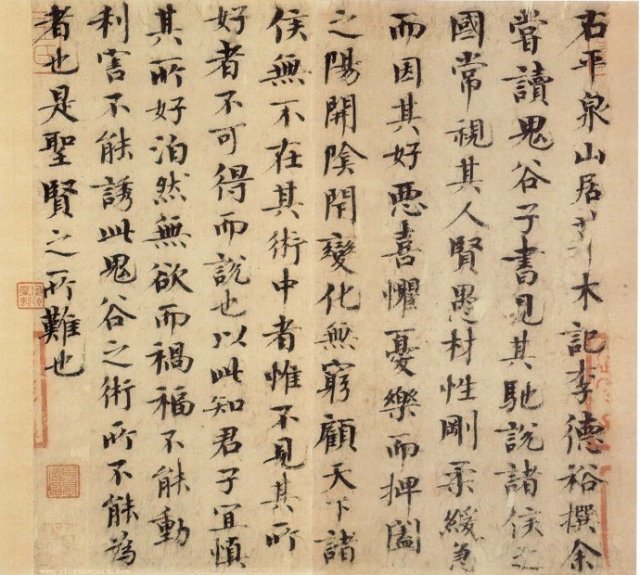 右平泉山居艸木記李德裕撰余
嘗讀鬼谷子書見其馳說諸侯之
國常視其人賢愚材性剛柔緩急
而因其好惡喜懼憂樂而捭闔
之陽開陰閇變化無窮顧天下諸
侯無不在其術中者惟不見其所
好者不可得而說也以此知君子宜慎
其所好泊然無欲而禍福不能動
利害不能誘此鬼谷之術所不能為
者也是聖賢之所難也